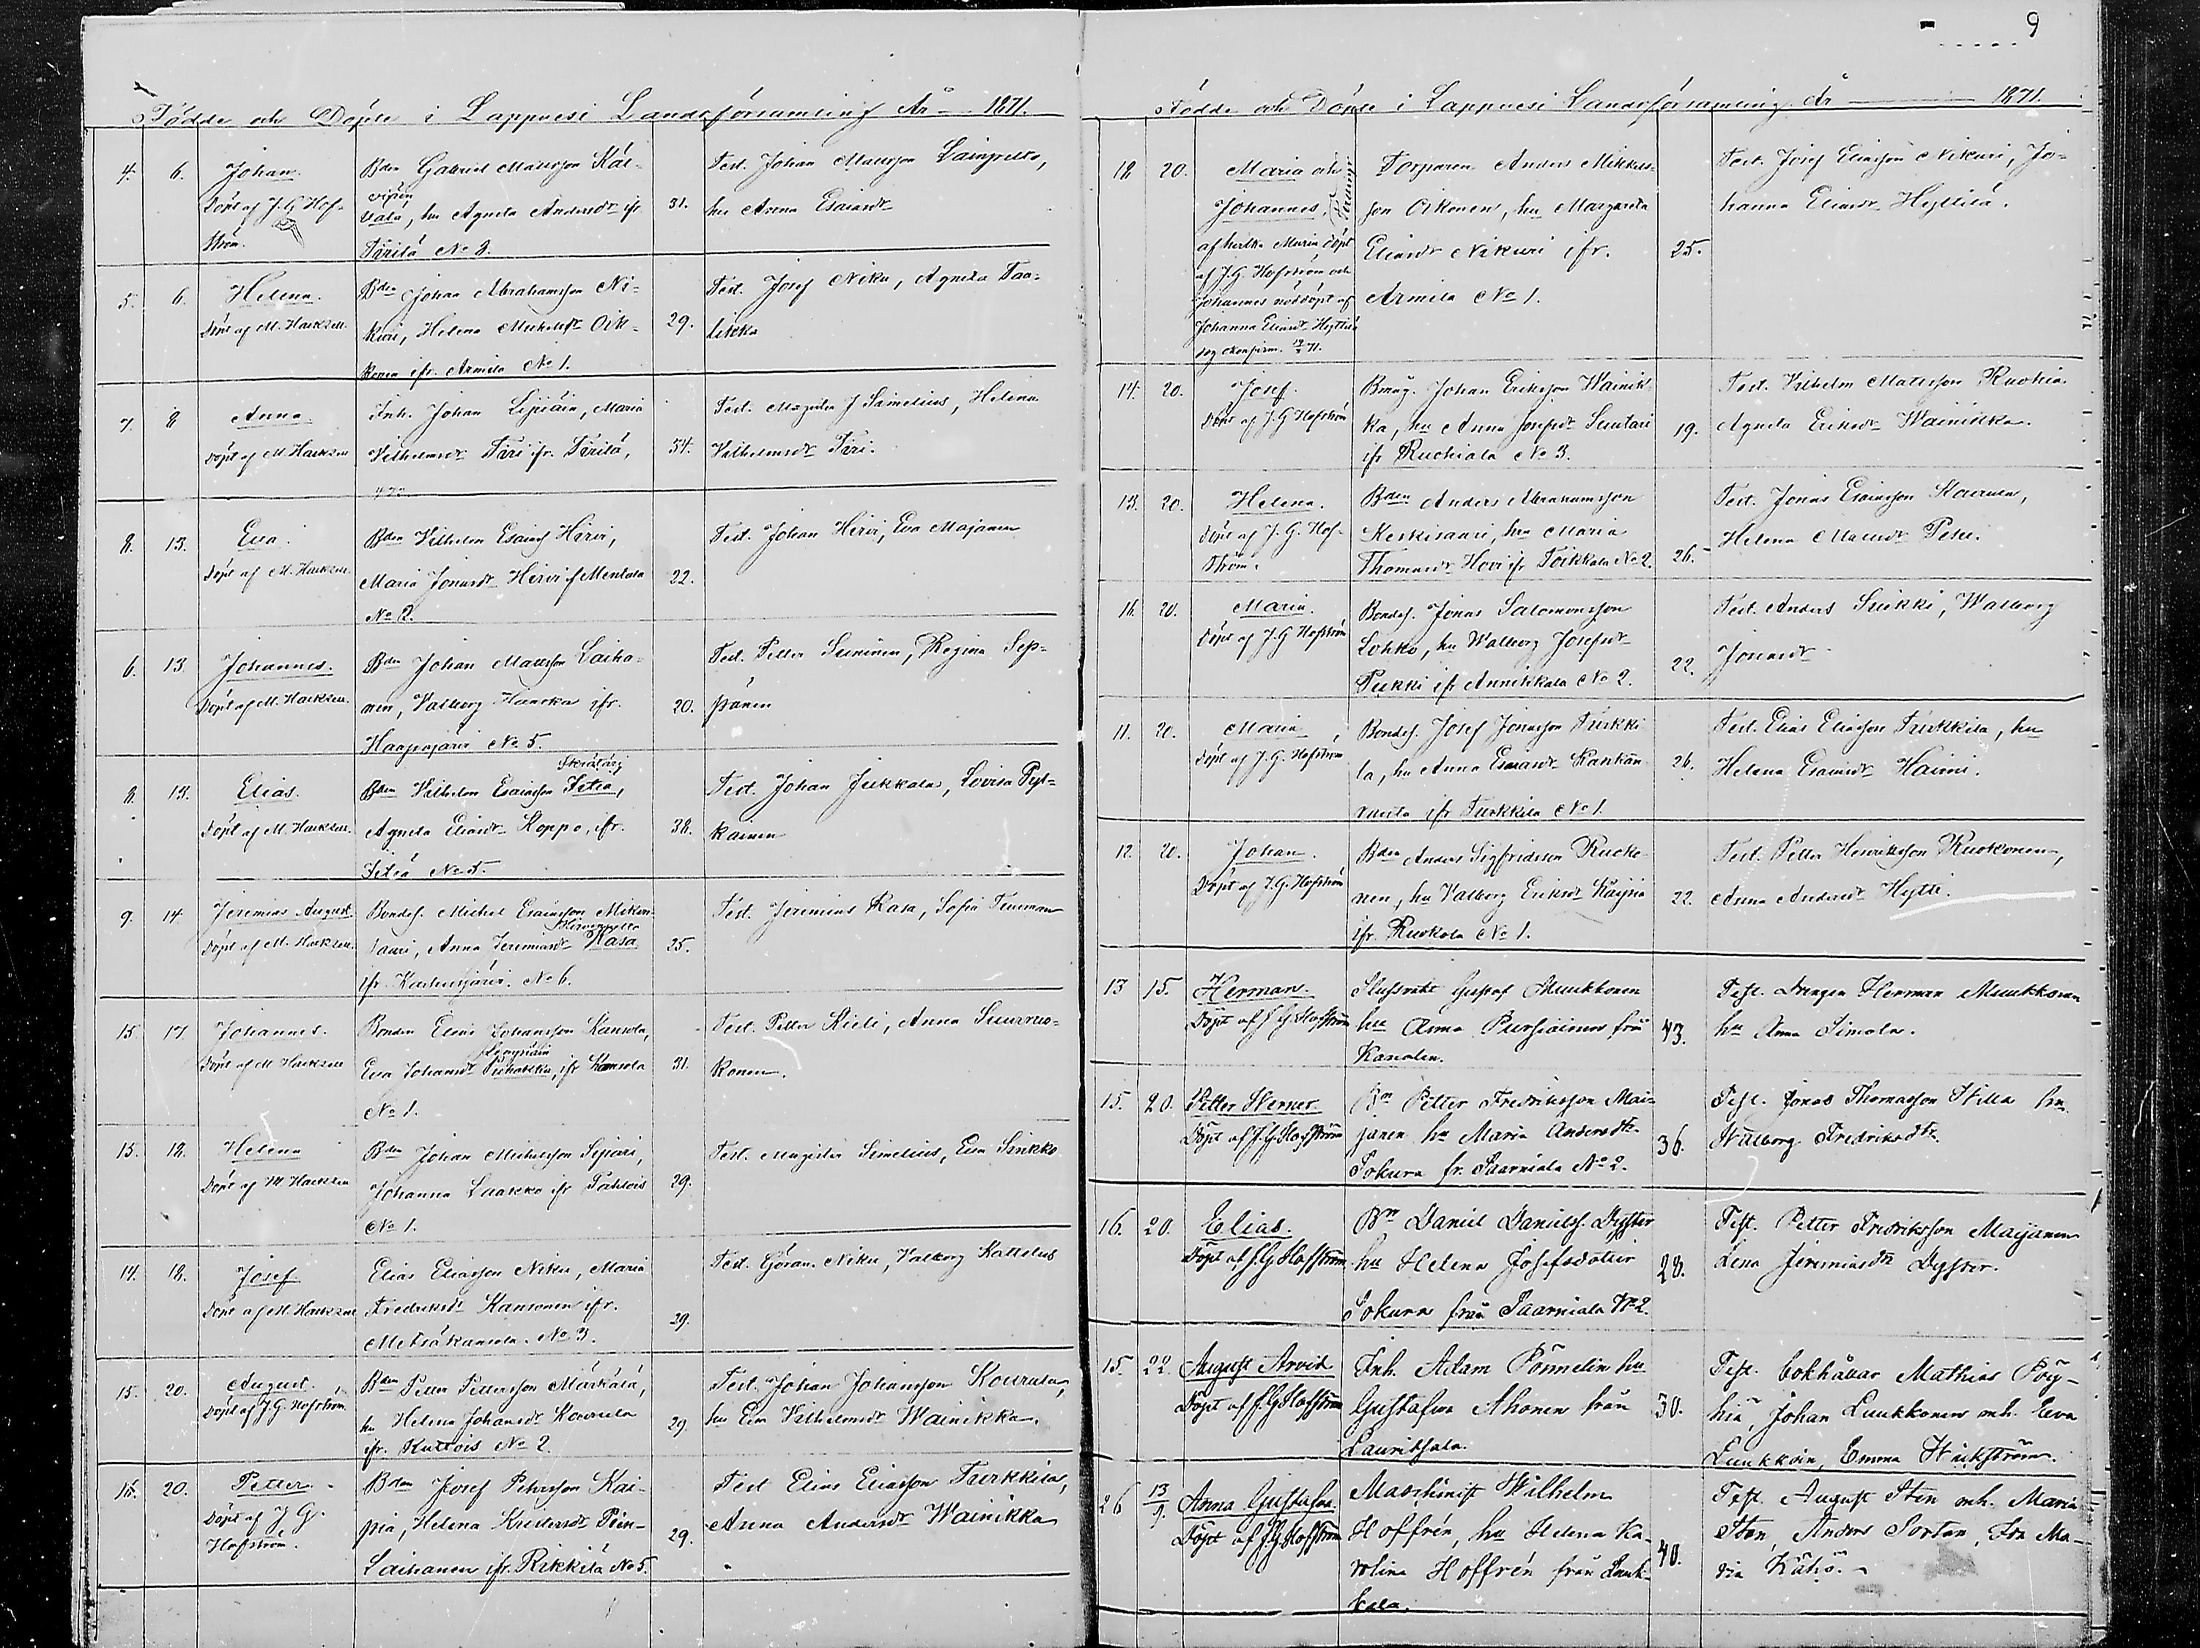 9
Födde och Döpte i Lappvesi Landsförsamling År 1871.
4. 6. Johan.
Döpt af J. G Hof-
ström.
Bden Gabriel Mattsson Käl-
vala, hu Agneta Andersdr ifr
Tärilä No 3.
31.
Test. Johan Mattsson
hu Anna Esaiasdr
5. 6. Helena.
Döpt af M. Hacksell.
Bden Johan Abrahamsson Ni-
kuri, Helena Oik-
konen ifr. Armila No 1.
29.
Test. Josef Niku, Agneta Taa-
likka
7. 8 Anna
Döpt af M. Hacksell
Inh. Johan Lipiäin, Maria
Vilhelmsdr Täri ifr. Tärilä,
34.
Test. Magister J Simelius, Helena
Vilhelmsdr Täri.
8. 13. Eva.
Döpt af M. Hacksell
Bden Vilhelm Esaias Hirvi,
Maria Jonasdr Hirvi if Mentula
No 12.
22.
Test. Johan Hirvi, Eva Majanen
6. 13. Johannes.
Döpt af M. Hacksell.
Bden Johan Mattsson Laiha-
nen, Valborg Hanska ifr.
Haapajärvi No 5.
20.
Test. Petter Suninen, Regina Sep-
pänen
8. 13. Elias.
Döpt af M. Hacksell.
Bden Vilhelm Esaiasson
Agneta Eliasdr Koppo, ifr.
No 5.
38.
Test. Johan Jukkala, Lovisa Pyl-
känen
9. 14. Jeremias August.
Döpt af M. Hacksell.
Bondes. Michel Esaiasson Miken-
saari, Anna Jeremiasdr Rasa
ifr. Karhusjärvi. No 6.
25.
Test. Jeremias Rasa, Sofia Tiusman
15 17. Johannes.
Döpt af M Hacksell
Bonden Elias Johansson Kansola,
Eva Johansdr ifr Kansola
No 1.
31.
Test. Petter Kieli, Anna Suurnä-
konen.
15. 18. Helena
Döpt af M Hacksell
Bden Johan Michelsson Sipari,
Johanna Laakko ifr Partois
No 1.
29.
Test. Magister Simelius, Eva Sinkko
14. 18. Josef
Döpt af M. Hacksell
Elias Eliasson Niku, Maria
Fredriksdr Kansonen ifr.
Metsäkansola. No 3.
29.
Test. Göran Niku, Valborg Kattelus
15. 20. August.
Döpt af J. G. Hofström
Bden Petter Pettersson Märkälä,
hu Helena Johansdr Kourula
ifr. Kuttois No 2.
29.
Test. Johan Johansson Kourula,
hu Eva Vilhelmsdr Wainikka.
16. 20. Petter.
Döpt af J G.
Hofström.
Bden Josef Petersson Kai-
pia, Helena Kristersdr Pien-
Laihanen ifr. Rikkilä No 5.
29.
Test Elias Eliasson Turkkila,
Anna Andersdr Wainikka
Födde och Döpte i Lappvesi Landsförsamling År 1871.
18 20. Maria och
Johannes,
af hvilka Maria döpt
af J. G. Hofström och
Johannes nöddöpt af
Johanna Eliasdr Hyttiä
Torparen Anders Mikkels-
son Oikonen, hu Margareta
Eliasdr Nikuri ifr.
Armila No 1.
25.
Test. Josef Eliasson Nikuri, Jo-
hanna Eliasdr Hyttiä.
14. 20. Josef.
Döpt af J. G Hofström
Bmåg. Johan Eriksson Wainik-
ka, hu Anna Josefsdr Suutari
ifr Ruohiala No 3.
19.
Test. Vilhelm Mattsson Ruohia
Agneta Eriksdr Wainikka.
13. 20. Helena.
Döpt af J. G. Hof-
ström.
Bden Anders Abrahamsson
Keskisaari, hu Maria
Thomasdr Hovi ifr Toikkala No 2.
26.
Test. Jonas Esaiasson Kourula,
Helena
16. 20. Maria.
Döpt af J. G Hofström
Bondes. Jonas Salomonsson
Lohko, hu Walborg Josefsdr
Pukki ifr Annikkala No 2.
22.
Test. Anders Sukki, Walborg
Jonasdr
11. 20. Maria
Döpt af J. G. Hofström
Bondes. Josef Jonasson Turkki-
la, hu Anna Esaiasdr
ifr Turkkila No 1.
26.
Test. Elias Eliasson Turkkila, hu
Helena Esaiasdr Haimi.
12. 20. Johan.
Döpt af J. G. Hofström
Bden Anders Sigfridsson Ruoko-
nen, hu Valborg Eriksdr Kaipia
ifr. Ruokola No 1.
22.
Test. Petter Henriksson Ruokonen,
Anna Andersdr Hytti.
13 15. Herman.
Döpt af J. G. Hofström
Slussvakt Gustaf Muukkonen
hu Anna Pursiainen från
Kanalen.
43.
Test. Drängen Herman Muukkonen
hu Anna Simola.
15. 20. Petter Werner
Döpt af J. G. Hofström
Bn Petter Fredriksson Mai-
janen hu Maria Andersdtr
Sokura fr. Saarniala No 2.
36.
Test. Jonas Thomasson Hilla hu
Walborg Fredriksdtr.
16. 20. Elias.
Döpt af J. G Hofström
Bn Daniel Daniels. Dyster
hu Helena Josefsdotter
Sokura från Saarniala No 2.
28.
Test. Petter Fredriksson Maijanen
Lena Jeremiasdtr Dyster.
15 22. August Arvid
Döpt af J. G Hofström
Inh. Adam Pömmelin hu
Gustafva Ahonen från
Lauritsala.
30.
Test. Bokhållar Mathias Pöy-
hiä, Johan Luukkonen och Eva
Luukkoin, Emma Wickström.
26 13/9. Anna Gustafva
Döpt af J. G Hofström
Maschinist Wilhelm
Hoffrén, hu Helena Ka-
rolina Hoffrén från
kala.
40.
Test. August Sten och Maria
Sten, Anders Sortan, Fru Ma-
ria Kähö.